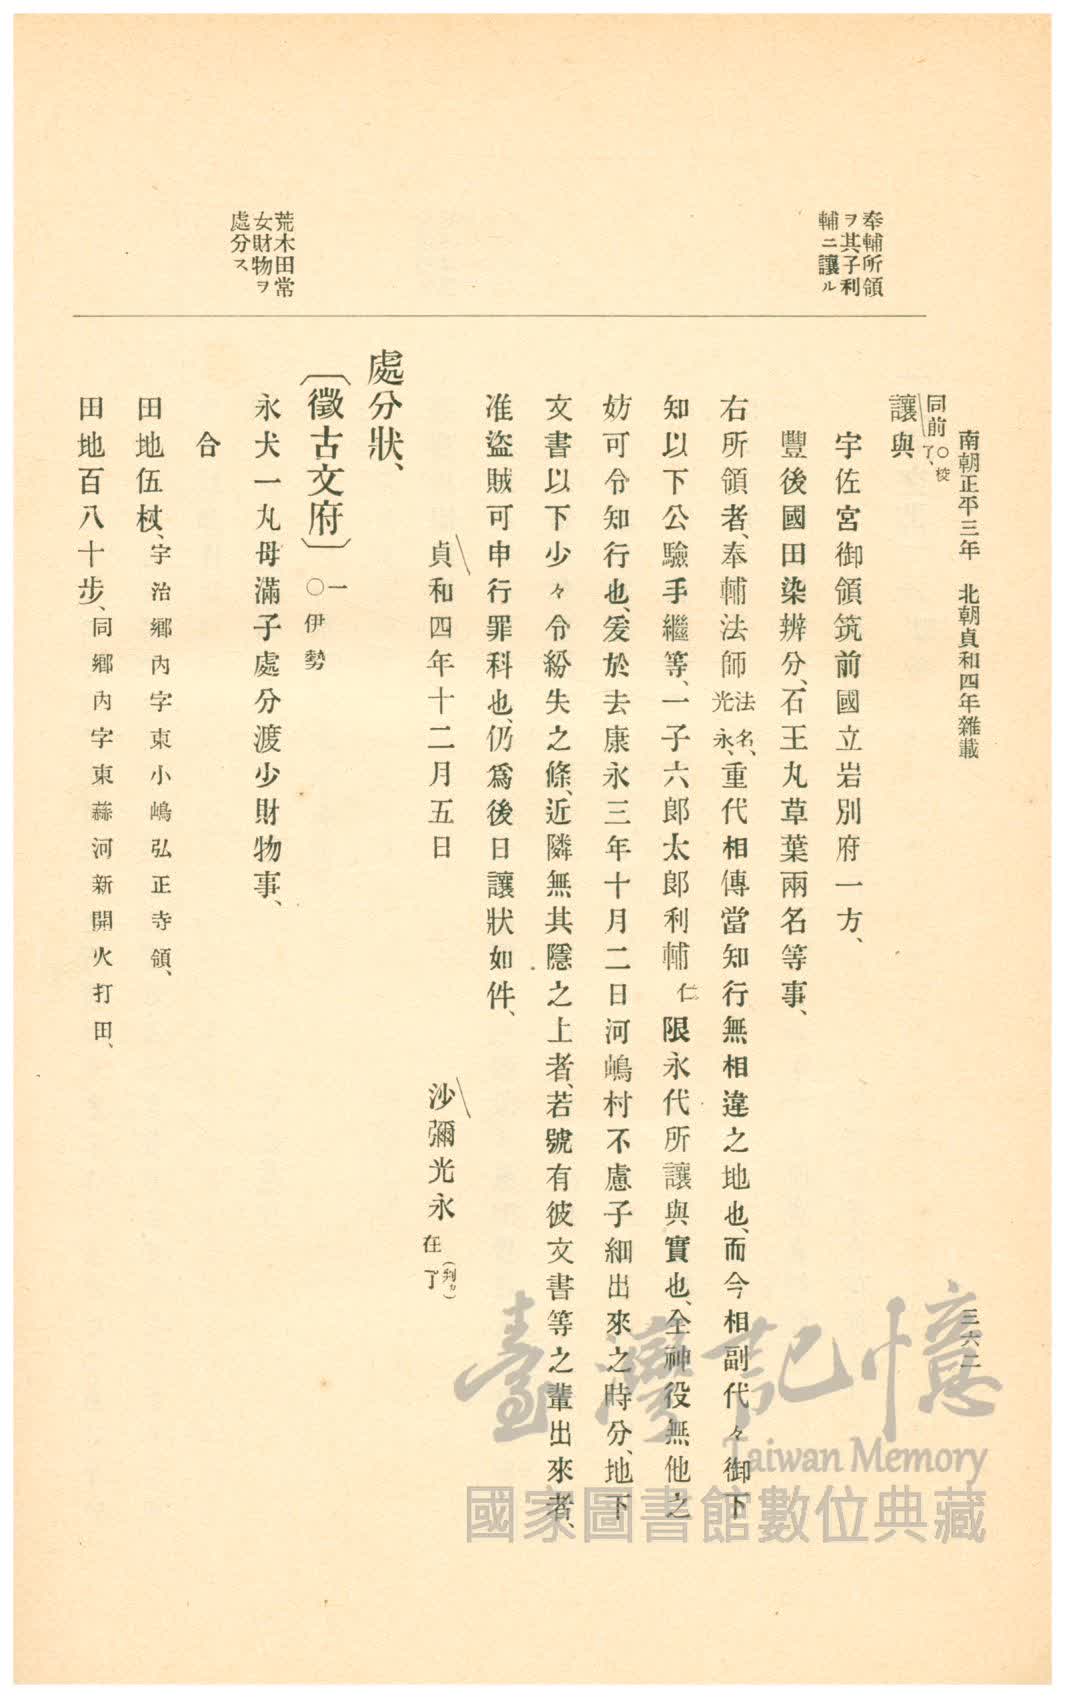 南朝正平三年　北朝貞和四年雜載
三六二
奉輔所領
ヲ其子利
輔ニ讓ル
同前○校了、
讓與
宇佐宮御領筑前國立岩別府一方、
豐後國田染辨分、石王丸草葉兩名等事、
右所領者、奉輔法師法名、光永、重代相傳當知行無相違之地也、而今相副代々御下
知以下公驗手繼等、一子六郎太郎利輔仁限永代所讓與實也、全神役無他之
妨可令知行也、爰於去康永三年十月二日河嶋村不慮子細出來之時分、地下
文書以下少々令紛失之條、近隣無其隱之上者、若號有彼文書等之輩出來者、
准盜賊可申行罪科也、仍爲後日讓狀如件、
貞和四年十二月五日
沙彌光永在(判カ)了
處分狀、
荒木田常
女財物ヲ
處分ス
〔徵古文府〕一○伊勢
永犬一丸母滿子處分渡少財物事、
合
田地伍杖、宇治鄕內字東小嶋弘正寺領、
田地百八十步、同鄕內字東蕬河新開火打田、
臺灣記憶
Taiwan Memory
國家圖書館數位典藏